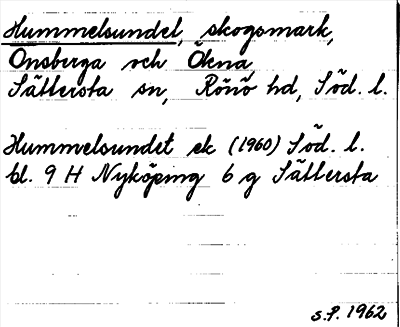 Hummelsundet, skogsmark,
Onsberga och Ökna,
Sättersta sn, Rönö hd, Söd. l.
Hummelsundet ek (1960) Söd. l.
bl. 9 H Nyköping 6 g Sättersta
S.P. 1962